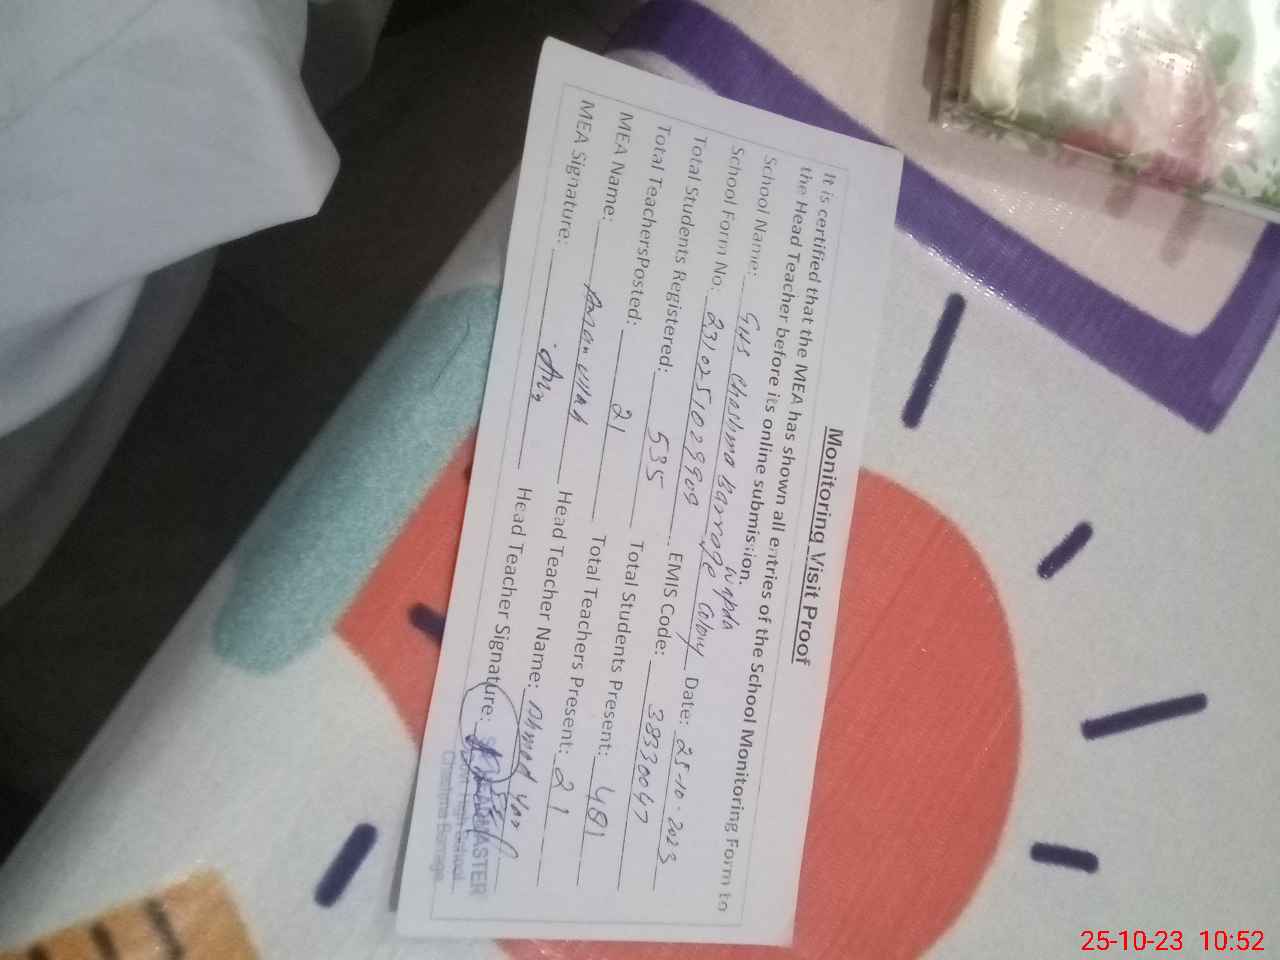 Monitoring Visit Proof
It is certified that the MEA has shown all entries of the School Monitoring Form to
the Head Teacher before its online submission.
School Name: GHS Chashma Barrage Wapda Colony Date: 25-10-2023
School Form No: 2310251029909 EMIS Code: 38330047
Total Students Registered: 535 Total Students Present: 481
Total TeachersPosted: 21 Total Teachers Present: 21
MEA Name: Amanullah Head Teacher Name: Ahmad Yar
MEA Signature: Head Teacher Signature:
MASTER
Chashma Barrage
25-10-23 10:52